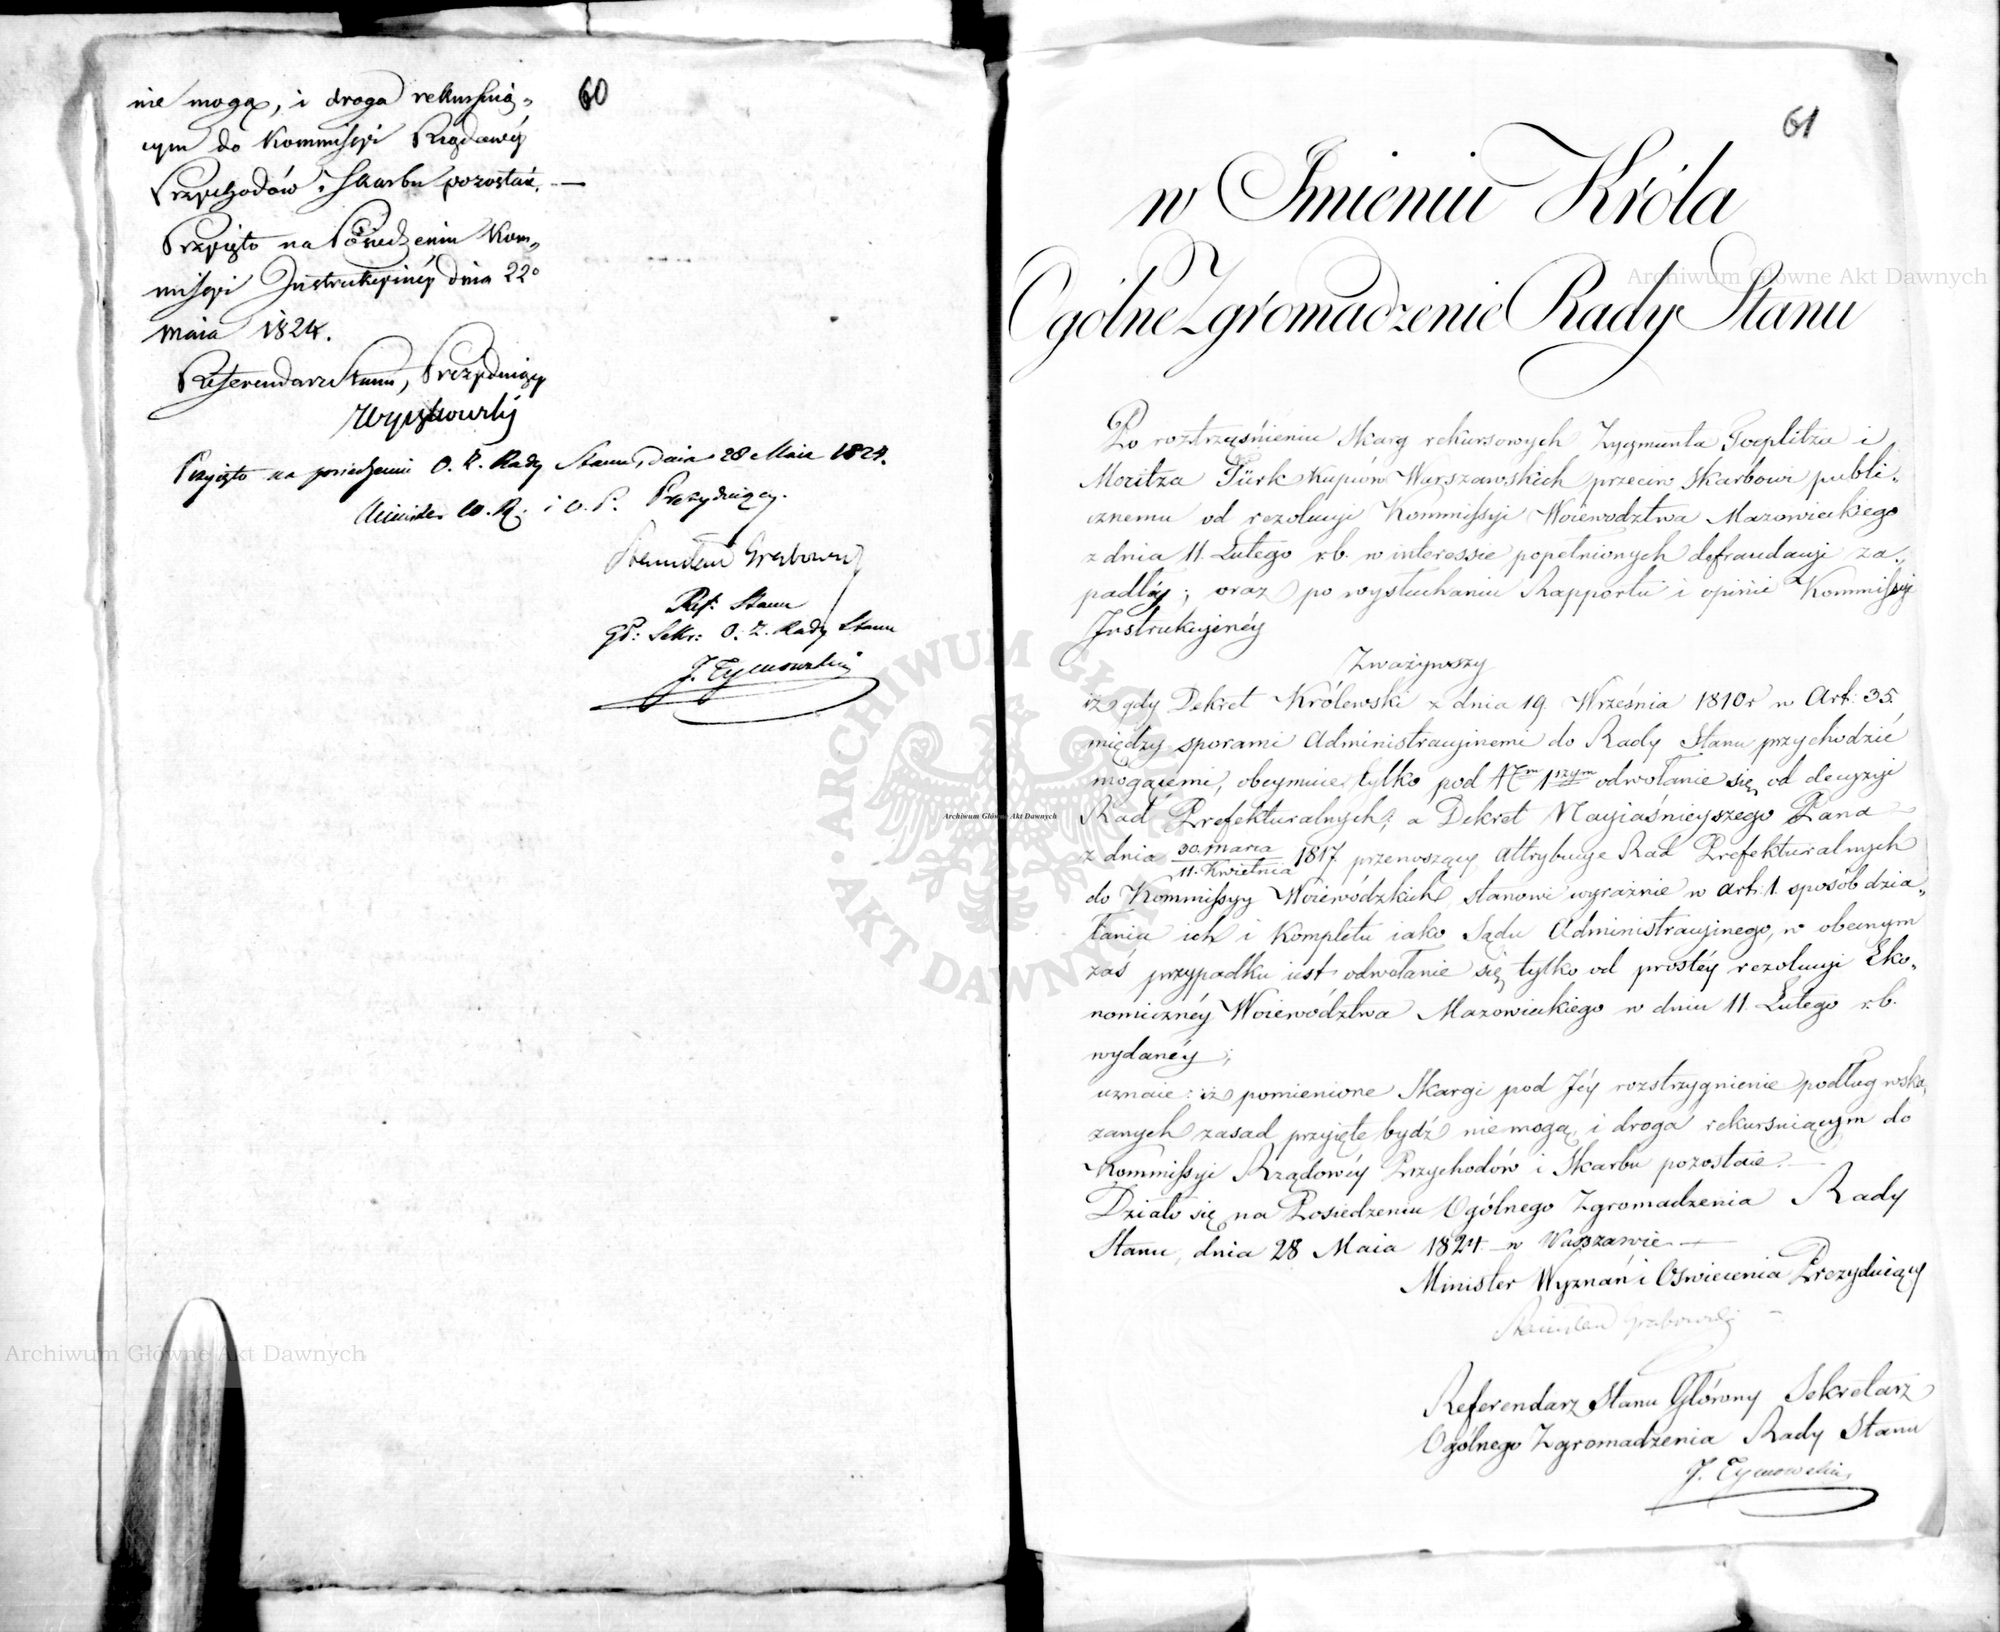 60
nie mogą, i droga rekursuią„
cym do Kommissyi Rządowéy
Przychodów i Skarbu pozostaie. —
Przyięto na Posiedzeniu Kom„
missyi Instrukcyinéy dnia 22º
maia 1824.
Referendarz Stanu, Prezyduiący
Wyczechowski
Przyięto na posiedzeniu O. Z. Rady Stanu, dnia 28 Maia 1824.
Minister W. R. i O. P. Prezyduiący.
Stanisław Grabowski
Ref: Stanu
Gł: Sekr: O. Z. Rady Stanu
J. Tymowski
61
w Imieniu Króla
Ogólne Zgromadzenie Rady Stanu
Po roztrząśnieniu Skarg rekursowych Zygmunta Toeplitza i
Moritza Türk Kupców Warszawskich przeciw Skarbowi publi„
cznemu od rezolucyi Kommissyi Woiewodztwa Mazowieckiego
z dnia 11. Lutego r.b. w interessie popełnionych defraudacyi za„
padłéy; oraz po wysłuchaniu Rapportu i opinii Kommissyi
Instrukcyinéy
Zważywszy
iż gdy Dekret Królewski z dnia 19. Września 1810 r w Art: 35.
między sporami Administracyinemi do Rady Stanu przychodzić
mogącemi, obeymuie tylko pod Nrm 1szym odwołanie się od decyzyi
Rad Prefekturalnych; a Dekret Nayiaśnieyszego Pana
z dnia 30. marca / 11. Kwietnia 1817 przenoszący Attrybucye Rad Prefekturalnych
do Kommissyy Woiewódzkich stanowi wyraźnie w art: 1. sposób dzia„
łania ich i Kompletu iako Sądu Administracyinego, w obecnym
zaś przypadku iest odwołanie się tylko od prostéy rezolucyi Eko„
nomicznéy Woiewództwa Mazowieckiego w dniu 11. Lutego r.b.
wydanéy;
uznaie: iż pomienione Skargi pod Jéy rozstrzygnienie podług wska„
zanych zasad przyięte bydź nie mogą i droga rekursuiącym do
Kommissyi Rządowéy Przychodów i Skarbu pozostaie. —
Działo się na Posiedzeniu Ogólnego Zgromadzenia Rady
Stanu, dnia 28 Maia 1824 w Warszawie —
Minister Wyznań i Oświecenia Prezyduiący
Stanisław Grabowski
Referendarz Stanu Główny Sekretarz
Ogólnego Zgromadzenia Rady Stanu
J. Tymowski
Archiwum Główne Akt Dawnych
Archiwum Główne Akt Dawnych
Archiwum Główne Akt Dawnych
ARCHIWUM GŁÓWNE AKT DAWNYCH